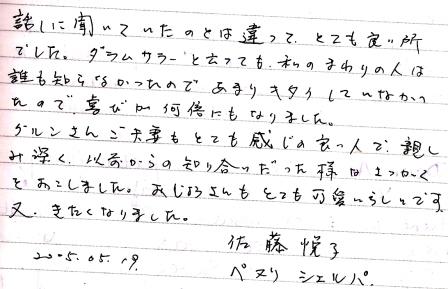 話しに聞いていたのとは違って、とても良い所
でした。ダラムサラーと云っても、私のまわりの人は
誰も知らなかったので あまりキタイしていなかっ
たので、喜びが何倍にもなりました。
グルンさんご夫妻もとても感じの良い人で、親し
み深く、以前からの知り合いだった様なさっかく
をおこしました。おじょうさんもとても可愛いらしいです。
又、きたくなりました。
2005.05.19. 佐藤 悦子
ペヌリ シェルパ.